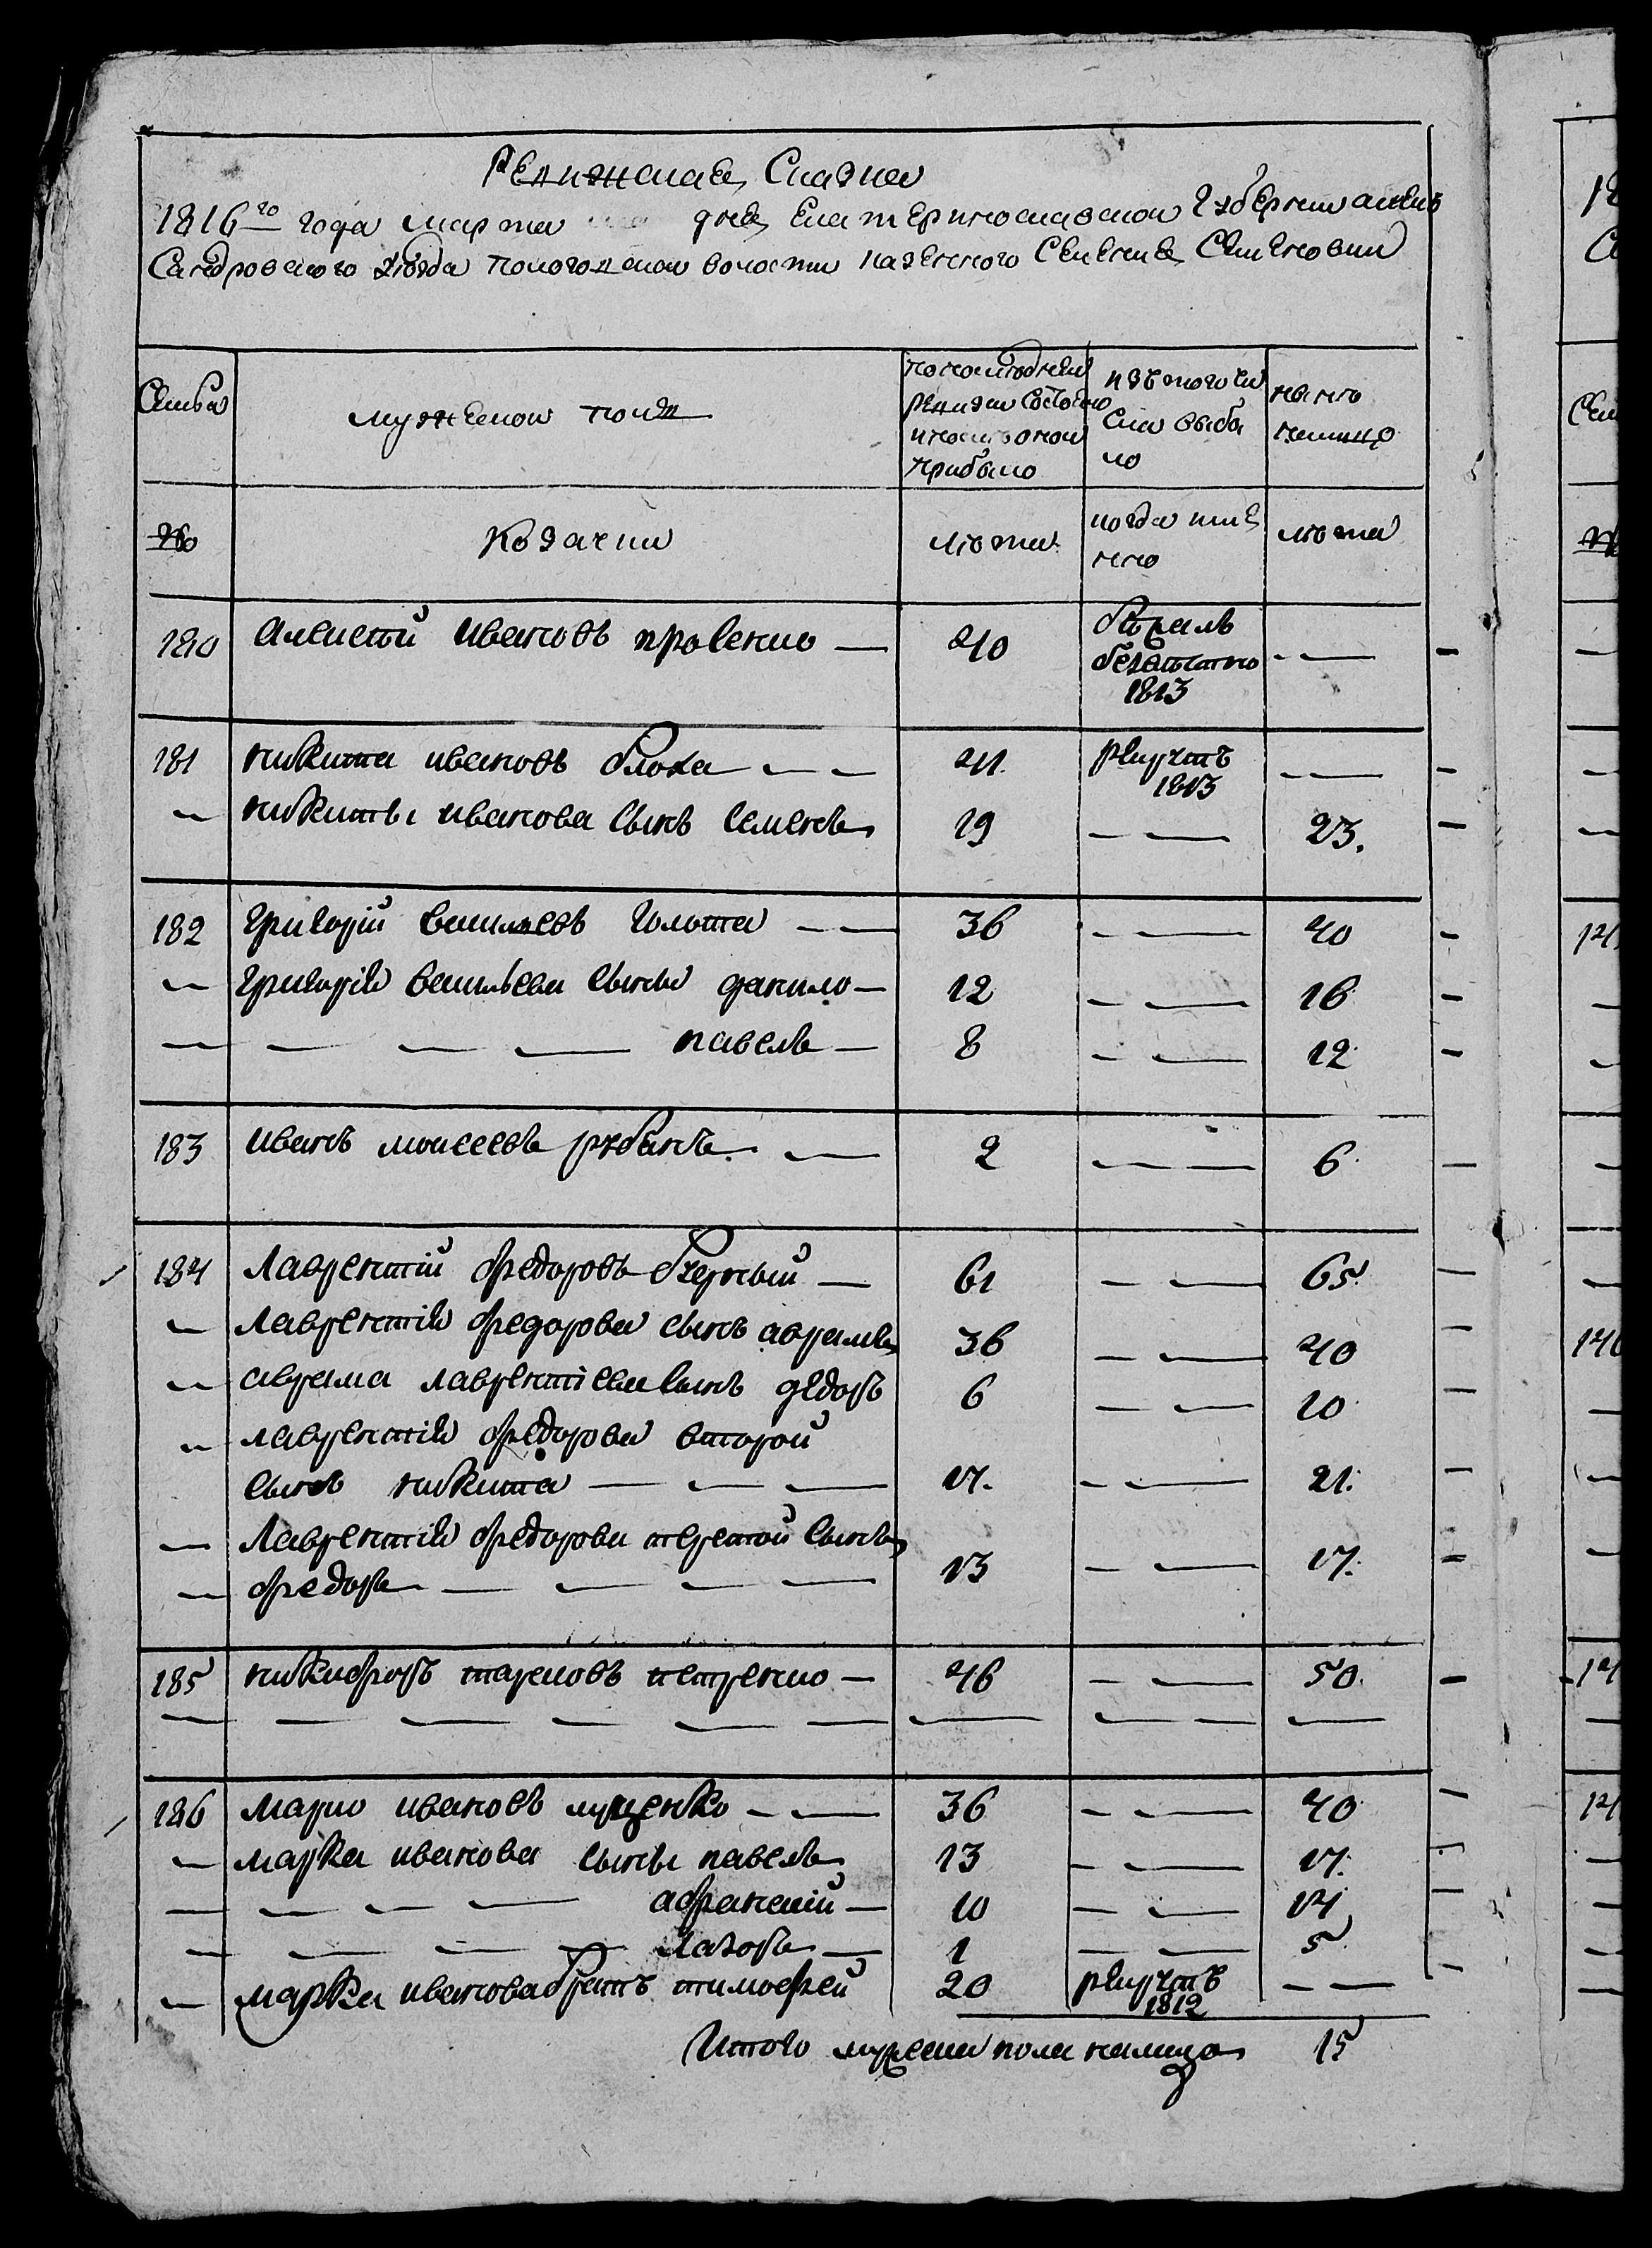 Ревижская Сказка
1816го года марта дня Екатеринославской Губернии алекъ
Сандровского уѣзда Пологовской волости казенного Селения Семеновки
Семьи
мужеской полъ
по последней ревизии состояло и после оной прибыло
изъ того числа выбыло
нынѣ налицо
№
Козачки
лѣта
когда именно
лѣта
180 алексѣй ивановъ кравенко — 40 бѣжалъ безъвѣстно 1813 — —
181 никита ивановъ блоха — — 41. рекрутъ 1813 — —
— никиты иванова сынъ семенъ 19 — — 23.
182 григорій васильевъ голота — — 36 — — 40
— григорія васильева сыны данило — 12 — — 16
— — — — павелъ — 8 — — 12
183 иванъ моисеевъ рубанъ — 2 — — 6
184 Лаврентій федоровъ — 61 — — 65
— лаврентія федорова сынъ аврамъ 36 — — 40
— аврама лаврентіева сынъ федоръ 6 — — 10
— лаврентія федорова второй
сынъ никита — — — 17. — — 21.
— Лаврентія федорова третой сынъ
— федоръ — — — — 13 — — 17.
185 никифоръ тарасовъ петренко — 46 — — 50.
186 марко ивановъ луценко — — 36 — — 40
— марка иванова сыны павелъ 13 — — 17.
— — — — афанасій — 10 — — 14
— — — — лазоръ — 1 — — 5
— марка иванова братъ тимофей 20 рекрутъ 1812 — —
Итого мужеска пола налицо 15